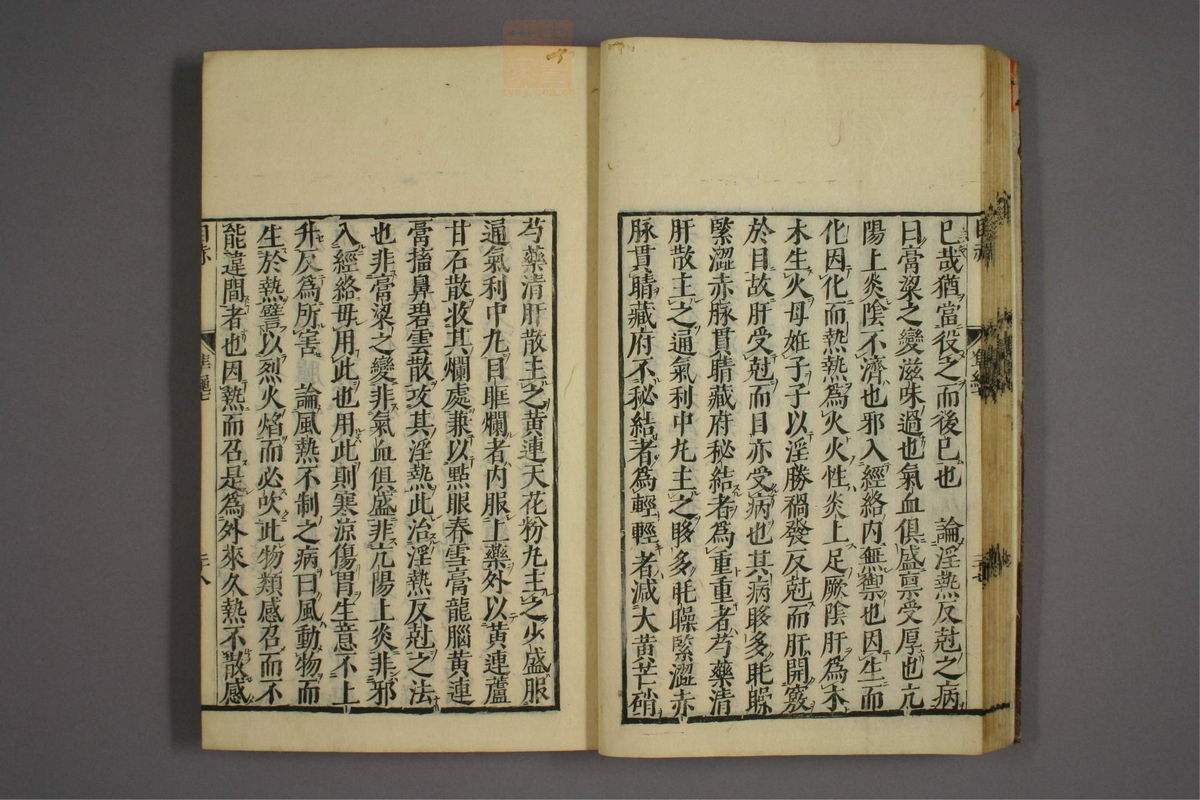 已哉猶當役之而後已也　論淫熱反尅之病
曰膏粱之變滋味過也氣血俱盛禀受厚也亢
陽上炎陰不濟也邪入經絡内無禦也因生而
化因化而熱熱爲火火性炎上足厥陰肝爲木
木生火母姙子子以淫勝禍發反尅而肝開竅
於目故肝受尅而目亦受病也其病眵多眊矂
緊澀赤脉貫睛藏府秘結者爲重重者芍藥清
肝散主之通氣利中丸主之眵多眊矂緊澀赤
脉貫睛藏府不秘結者爲輕輕者減大黄芒硝
芍藥清肝散主之黄連天花粉丸主之少盛服
通氣利中丸目眶爛者内服上藥外以黄連蘆
甘石散收其爛處兼以點眼春雪膏龍腦黄連
膏搐鼻碧雲散攻其淫熱此治淫熱反尅之法
也非膏粱之變非氣血俱盛非亢陽上炎非邪
入經絡毋用此也用此則寒涼傷胃生意不上
升反爲所害　論風熱不制之病曰風動物而
生於熱譬以烈火焰而必吹此物類感召而不
能違間者也因熱而召是爲外來久熱不散感
二十八